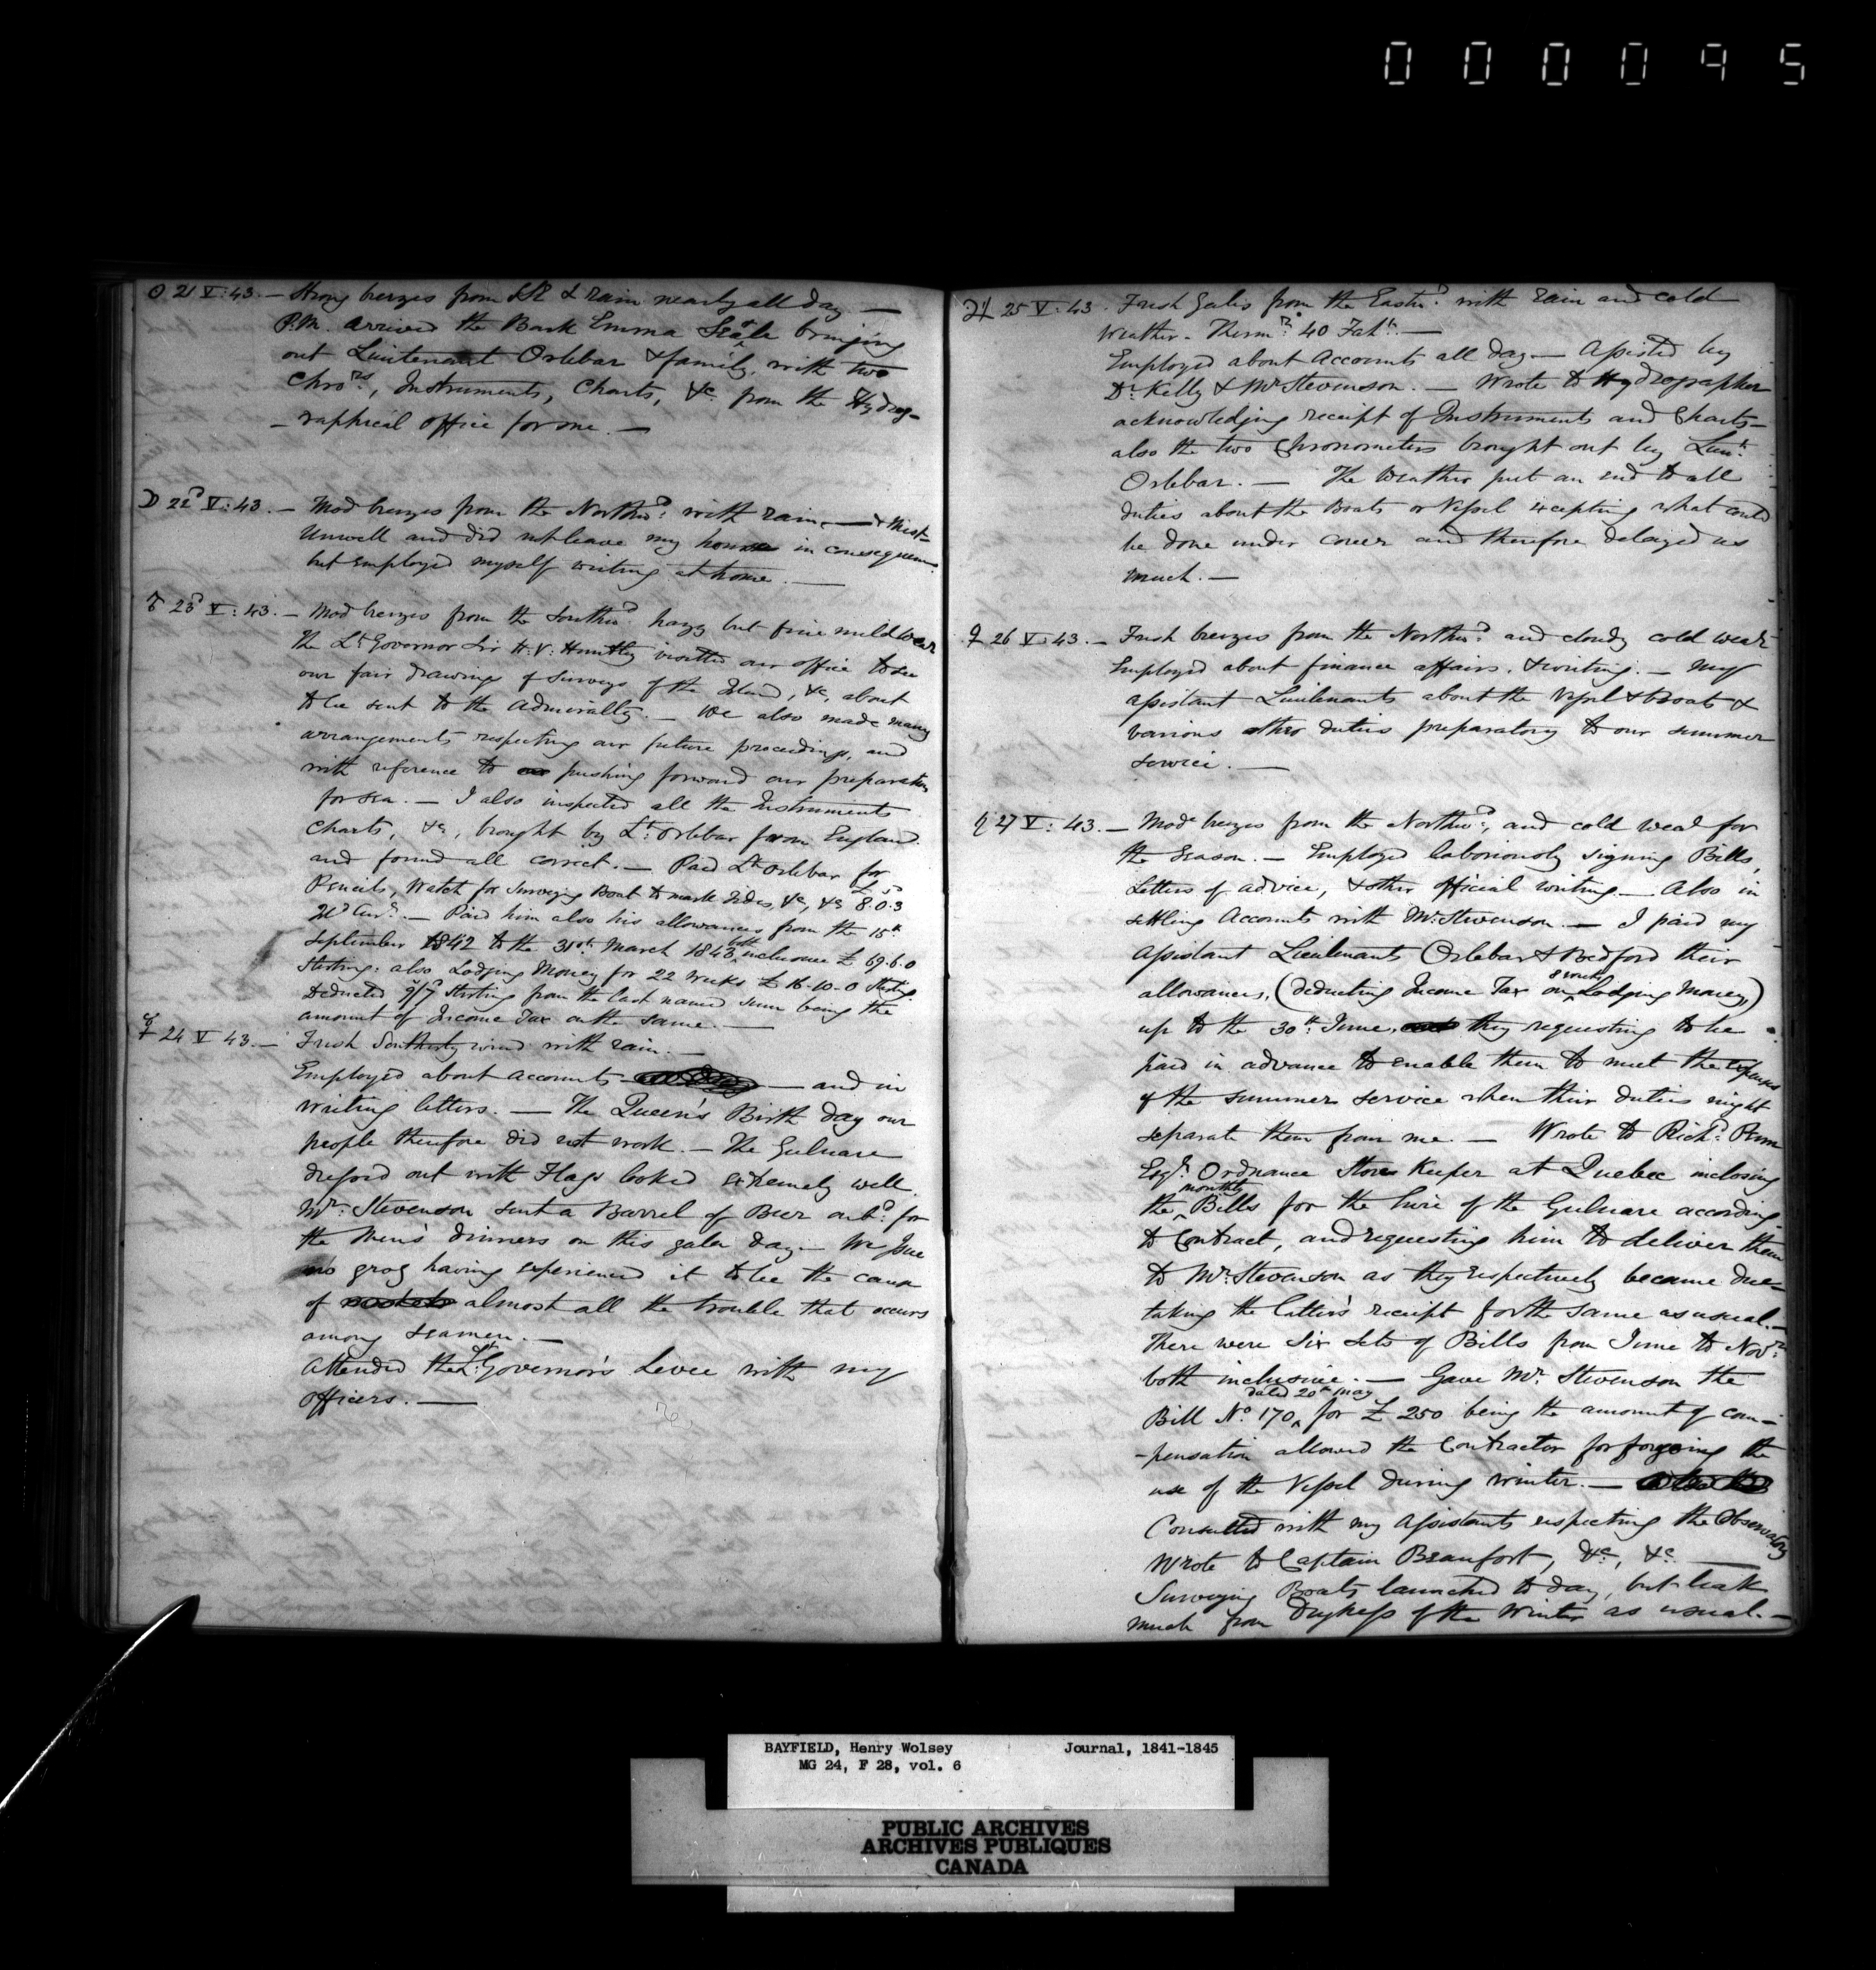 000095
☉ 21 V:43. — Strong breezes from SE & rain nearly all day —
P.M. arrived the Bark Emma bringing
out Lieutenant Orlebar & family, with two
Chrors, Instruments, Charts, &c. from the Hydrog-
-raphical office for me. —
☽ 22d V:43. — Mod breezes from the Northwd. with rain, — & Mist —
Unwell and did not leave my house in consequence
but employed myself writing at home. —
♂ 23d V:43. — Mod breezes from the Southwd. hazy but fine mild wear
The Lt Governor Sir H.V. Huntley visited our office to see
our fair drawings of surveys of the Island, &c, about
to be sent to the Admiralty. — We also made many
arrangements respecting our future proceedings, and
with reference to pushing forward our preparations
for sea. — I also inspected all the Instruments
Charts, &c, brought by Lt. Orlebar from England
and found all correct. — Paid Lt Orlebar for
Pencils, Watch for Surveying Boat to mark Tides, &c, &c £8.0.3
— Paid him also his allowances from the 15th
September 1842 to the 31st March 1843 both inclusive £69.6.0
Sterling: also Lodging Money for 22 weeks £16-10-0 Sterling
Deducted 9/7 Sterling from the last named sum being the
amount of Income Tax on the same. —
☿ 24 V 43. — Fresh Southerly wind with rain. —
Employed about accounts — and in
writing letters. — The Queen's Birth day our
people therefore did not work. — The Gulnare
dressed out with Flags looked extremely well.
Mr. Stevenson sent a Barrel of Beer onbd. for
the Men's dinners on this gala day — We issue
no grog having experienced it to be the cause
of almost all the trouble that occurs
among seamen. —
Attended the Lt. Governor's Levee with my
officers. —
♃ 25 V:43. Fresh Gales from the Eastwd. with rain and cold
Weather. Thermr. 40° Faht. —
Employed about Accounts all day — Assisted by
Dr. Kelly & Mr Stevenson. — Wrote to Hydrographer
acknowledging receipt of Instruments and Charts —
also the two Chronometers brought out by Lieut.
Orlebar. — The Weather put an end to all
duties about the Boats or Vessel excepting what could
be done under cover and therefore delayed us
much. —
♀ 26 V:43. — Fresh breezes from the Northwd. and cloudy cold wear
Employed about finance affairs, & writing. — My
assistant Lieutenants about the Vessel & Boats &
various other duties preparatory to our summer
service. —
♄ 27 V:43. — Mode breezes from the Northwd., and cold wear for
the season. — Employed laboriously signing Bills,
Letters of advice, & other official writing — Also in
settling Accounts with Mr. Stevenson. — I paid my
Assistant Lieutenants Orlebar & Bedford their
allowances, (deducting Income Tax on 8 weeks Lodging Money,)
up to the 30th June, they requesting to be
paid in advance to enable them to meet the expenses
of the summer service when their duties might
separate them from me. — Wrote to Richd.
Esqr. Ordnance Store Keeper at Quebec inclosing
the monthly Bills for the hire of the Gulnare according
to Contract, and requesting him to deliver them
to Mr. Stevenson as they respectively became due —
taking the latter's receipt for the same as usual. —
There were six sets of Bills from June to Novr.
both inclusive. — Gave Mr. Stevenson the
Bill No. 170, dated 20th May for £250 being the amount of com-
-pensation allowed the Contractor for forgoing the
use of the Vessel during winter. —
Consulted with my Assistants respecting the Observatory
Wrote to Captain Beaufort, &c, &c —
Surveying Boats launched to day, but leak
much from Dryness of the Winter as usual. —
BAYFIELD, Henry Wolsey Journal, 1841-1845
MG 24, F 28, vol. 6
PUBLIC ARCHIVES
ARCHIVES PUBLIQUES
CANADA